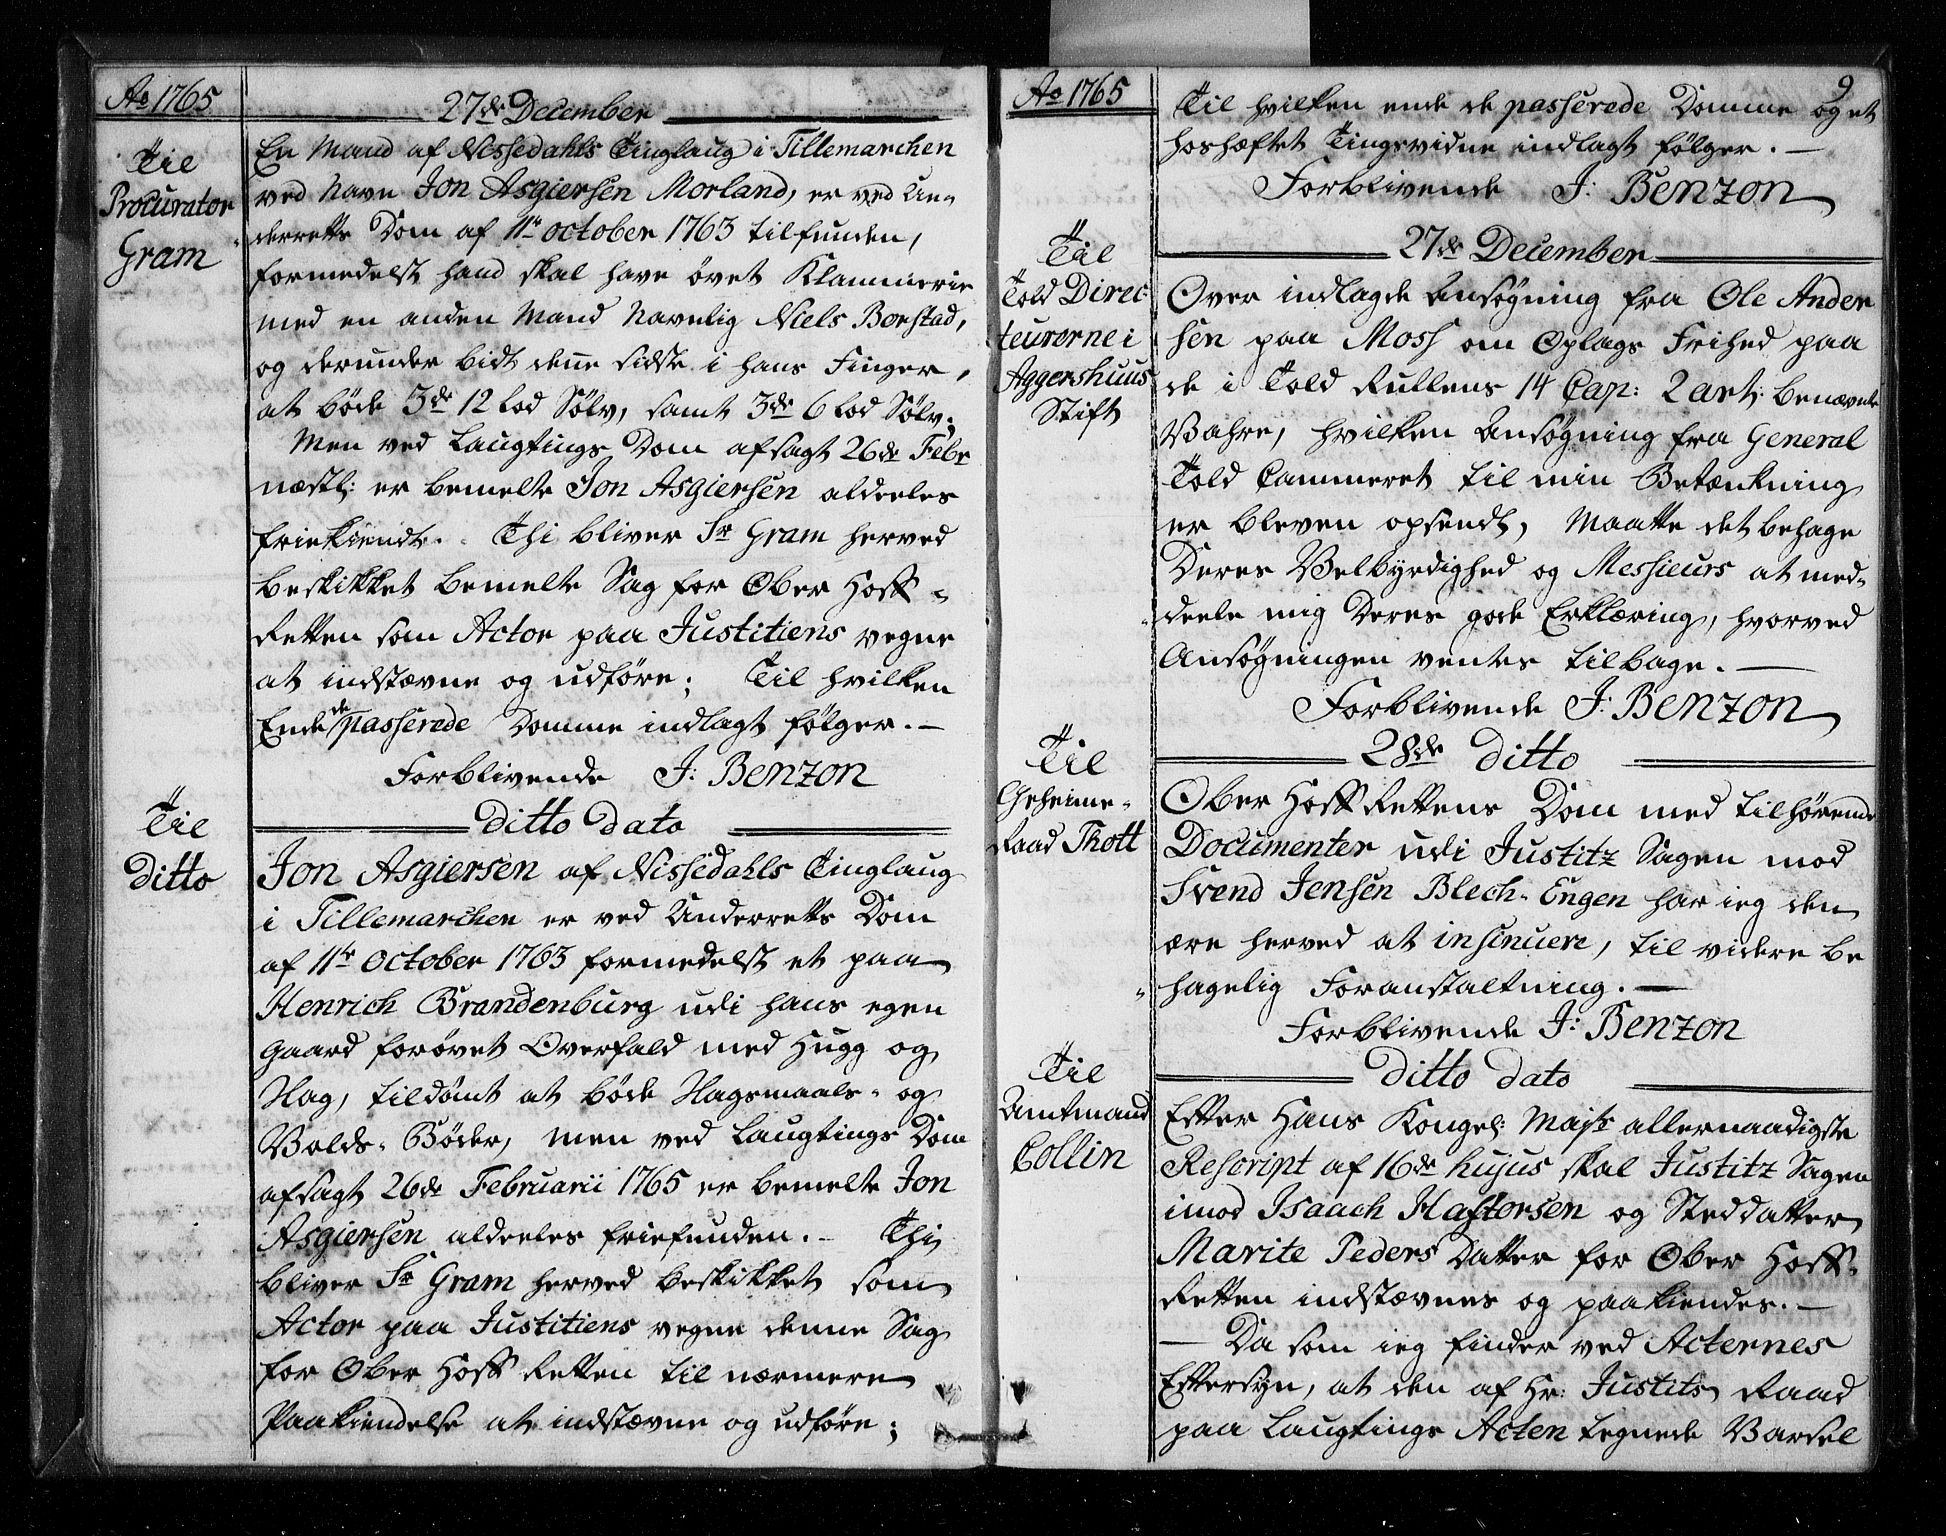 Ao 1765
27de December
Til
Procurator
Gram
En Mand af Nissedahls Tinglaug i Tillemarchen
ved Navn Jon Asgiersen Morland, er ved Un-
derretts Dom af 11te October 1763 tilfunden,
formedelst hand skal have øvet Klammerie
med en anden Mand Navnlig Niels Borstad,
og derunder bidt denne sidste i hans Finger,
at bøde 3de 12 Lod Sølv, samt 3de 6 Lod Sølv;
Men ved Laugtings Dom afsagt 26de Febr
næstl: er bemelte Jon Asgiersen aldeeles
friekiendt. Thi bliver Sr Gram herved
beskikket bemelte Sag for Ober Hoff-
Retten som Actor paa Justitiens vegne
at indstævne og udføre; Til hvilken
Ende de passerede Domme indlagt følger. —
Forblivende J: Benzon
Til
ditto
ditto dato
Jon Asgiersen af Nissedahls Tinglaug
i Tillemarchen er ved Underretts Dom
af 11te October 1763 formedelst et paa
Henrich Brandenburg udi hans egen
Gaard forøvet Overfald med Hugg og
Slag, tildømt at bøde Slagsmaals- og
Volds-Bøder, men ved Laugtings Dom
afsagt 26de Februarii 1765 er bemelte Jon
Asgiersen aldeeles friefunden. - Thi
bliver Sr Gram herved beskikket som
Actor paa Justitiens vegne denne Sag
for Ober Hoff Retten til nærmere
Paakiendelse at indstævne og udføre;
Ao 1765
9
Til hvilken ende de passerede Domme og et
hoshæftet Tingsvidne indlagt følger. —
Forblivende J: Benzon
Til
Told Direc-
teurerne i
Aggershuus
Stift
27de December
Over indlagde Ansøgning fra Ole Ander
sen paa Moss om Oplags Frihed paa
de i Told Rullens 14 Cap: 2 art: benævnte
Vahre, hvilken Ansøgning fra General
Told Cammeret til min Betænkning
er bleven opsendt, Maatte det behage
Deres Velbyrdighed og Messieurs at med-
deele mig Deres gode Erklæring, hvorved
Ansøgningen ventes tilbage. —
Forblivende J: Benzon
Til
Geheime-
Raad Thott
28de ditto
Ober Hoff Rettens Dom med tilhørende
Documenter udi Justitz Sagen mod
Svend Jensen Blech-Engen har ieg den
ære herved at insinuere, til videre be
hagelig Foranstaltning. —
Forblivende J: Benzon
Til
Amtmand
Collin
ditto dato
Efter Hans Kongel: Majts allernaadigste
Rescript af 16de hujus skal Justitz Sagen
imod Isaach Haftorsen og Steddatter
Marite Peders Datter for Ober Hoff-
Retten indstævnes og paakiendes. —
— Da som ieg finder ved Acternes
Eftersyn, at den af Hr: Justits Raad
paa Laugtings Acten tegnede Varsel